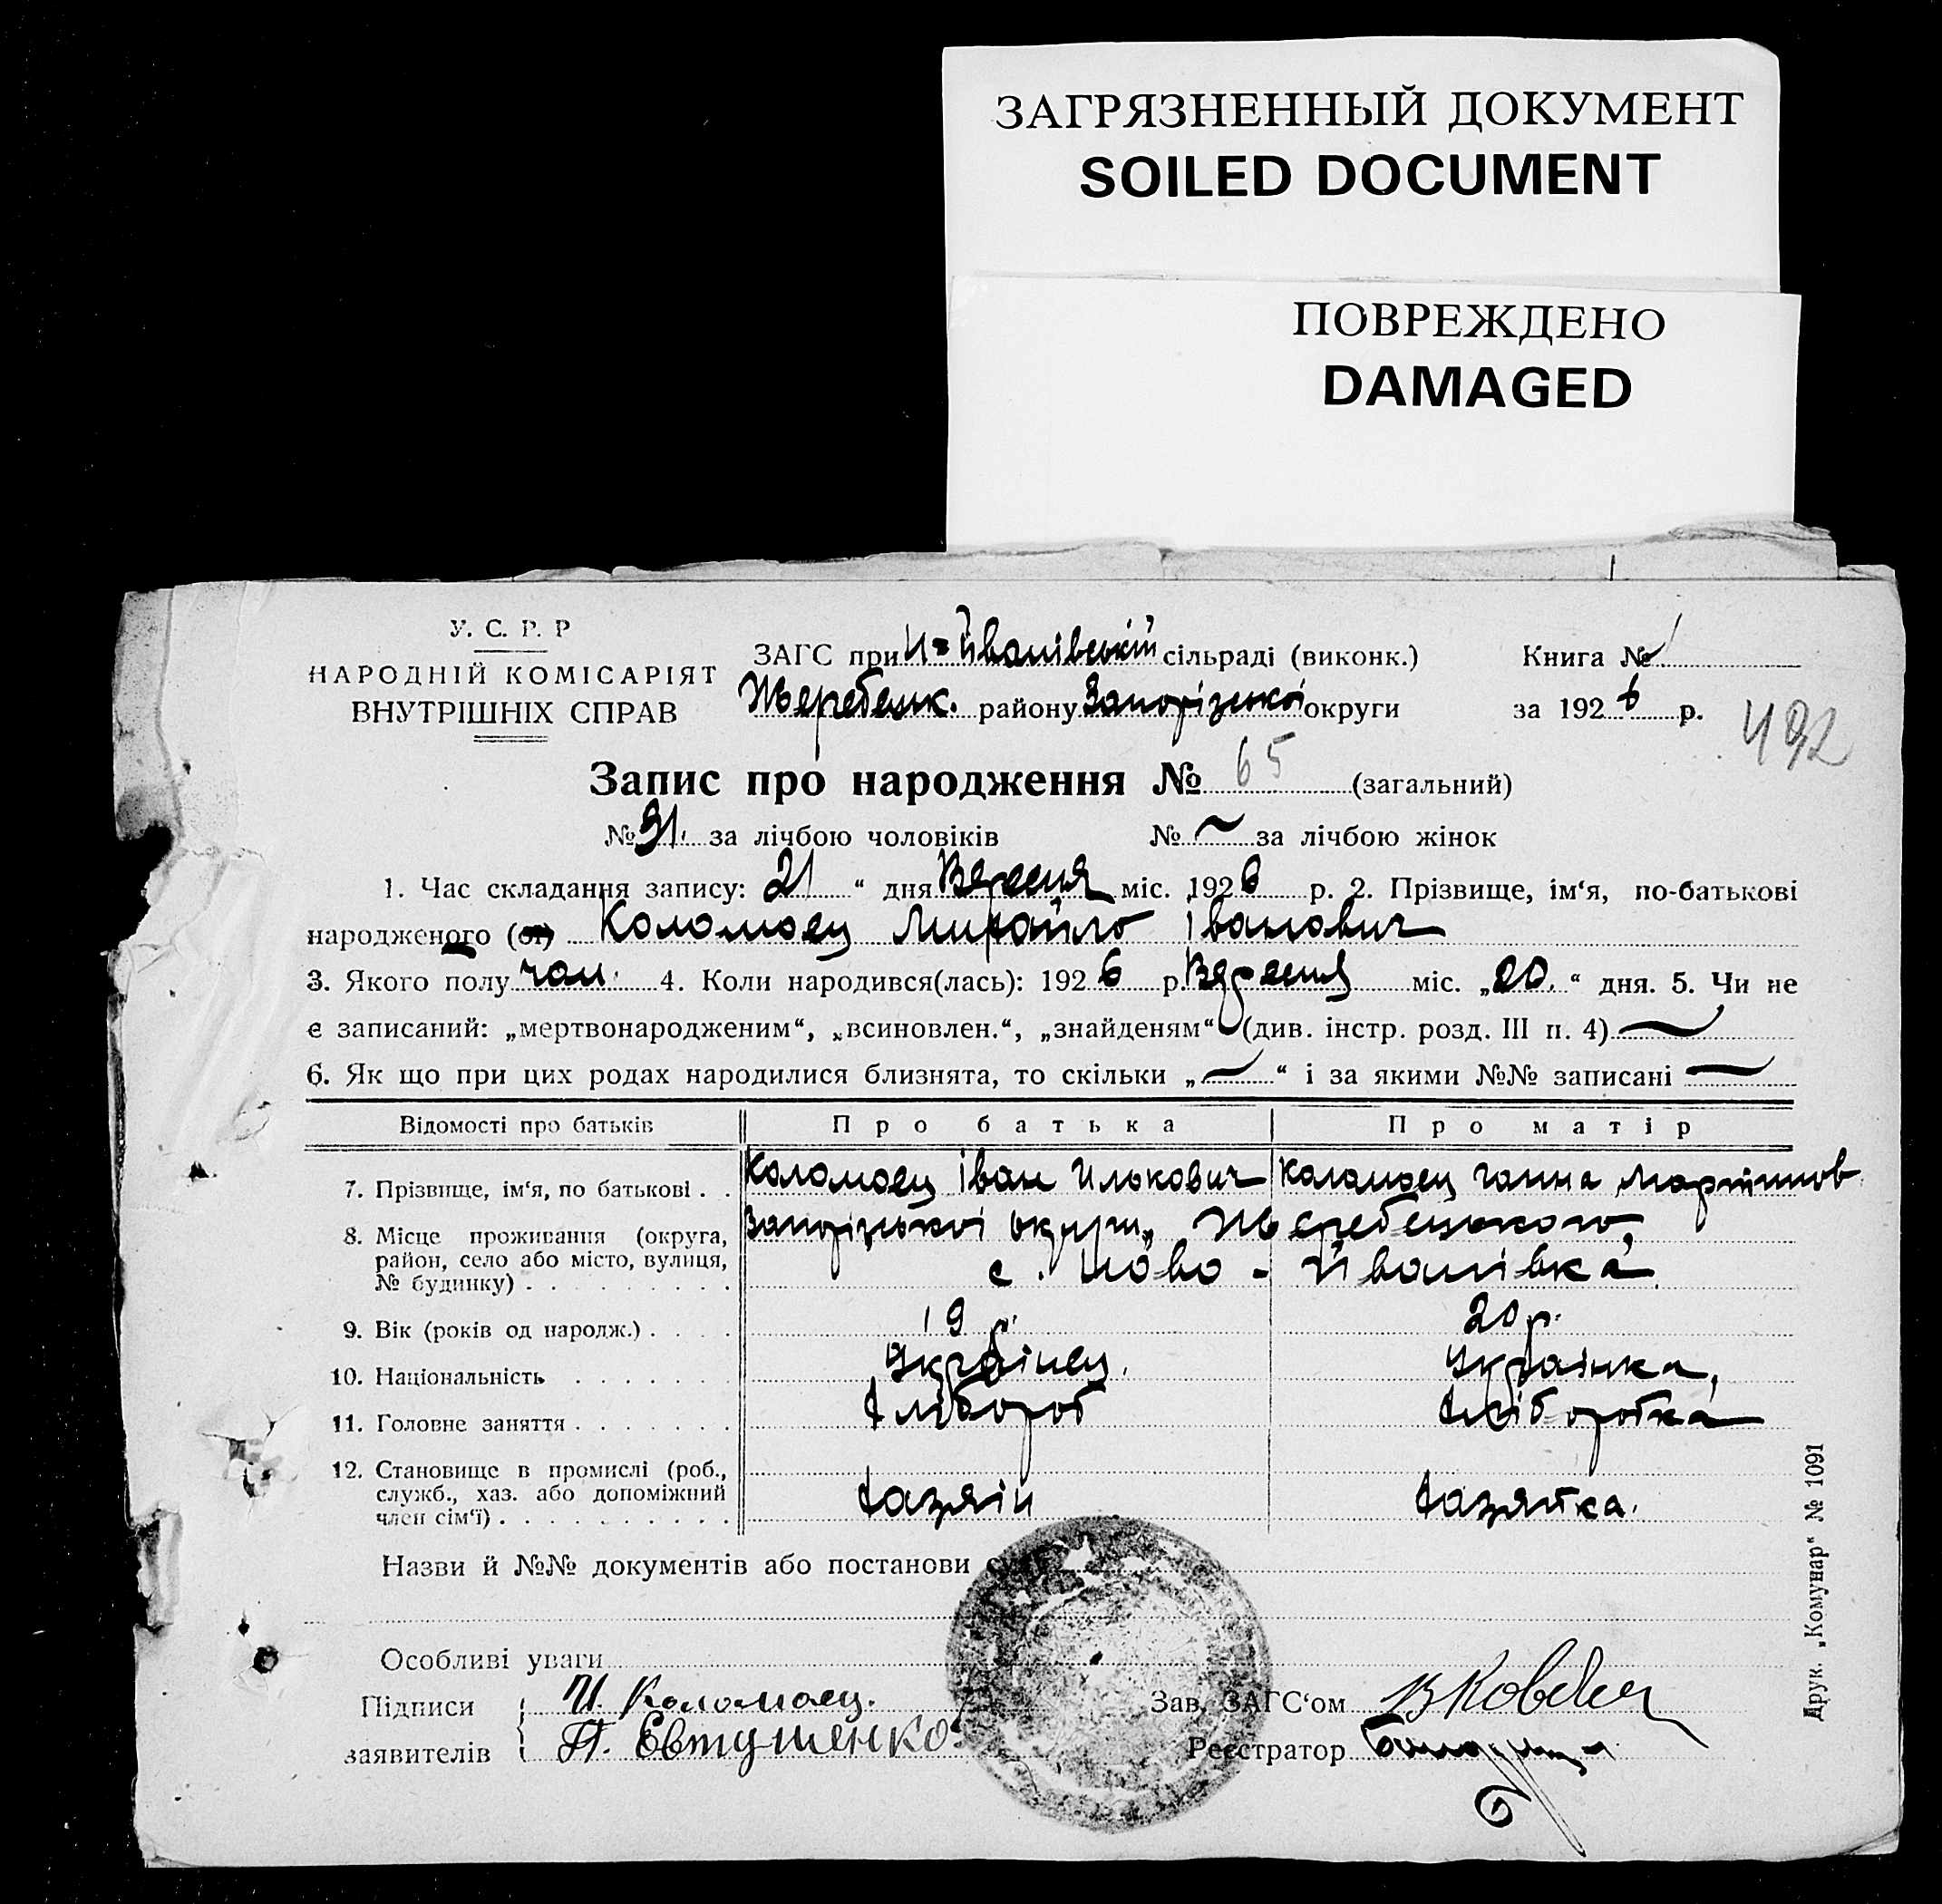 ЗАГРЯЗНЕННЫЙ ДОКУМЕНТ
SOILED DOCUMENT
ПОВРЕЖДЕНО
DAMAGED
У. С. Р. Р
НАРОДНІЙ КОМІСАРІЯТ
ВНУТРІШНІХ СПРАВ
ЗАГС при Н-Йванівській сільраді (виконк.)
Жеребецьк. району Запорізької округи
Книга № 1
за 1926 р.
492
Запис про народження № 65 (загальний)
№ 31. за лічбою чоловіків № — за лічбою жінок
1. Час складання запису: 21 “ дня Вересня міс. 1926 р. 2. Прізвище, ім‘я, по-батькові
народженого (ої) Коломоец Михайло Іванович
3. Якого полу чол. 4. Коли народився(лась): 1926 р. Вересня міс. „20.“ дня. 5. Чи не
є записаний: „мертвонародженим“, „всиновлен.“, „знайденям“ (див. інстр. розд. III п. 4) —
6. Як що при цих родах народилися близнята, то скільки „—“ і за якими №№ записані —
Відомості про батьків Про батька Про матір
7. Прізвище, ім‘я, по батькові . . Коломоец Іван Илькович Коломоец Ганна Мартинов
8. Місце проживання (округа, район, село або місто, вулиця, № будинку) . . . . . . . . . Запорізької округи, Жеребецького,
с. Ново-Йванівка
9. Вік (років од народж.) . . . . 19 р. 20 р.
10. Національність . . . . . . . Українец. Українка,
11. Головне заняття . . . . . . . Хлібороб Хліборобка
12. Становище в промислі (роб., служб., хаз. або допоміжний член сім‘ї) . . . . . . . . . . Хазяїн Хазяйка.
Назви й №№ документів або постанови
Особливі уваги
Підписи И. Коломоец.
заявителів П. Евтушенко
Зав. ЗАГС‘ом
Реєстратор
Друк. „Комунар“ № 1091